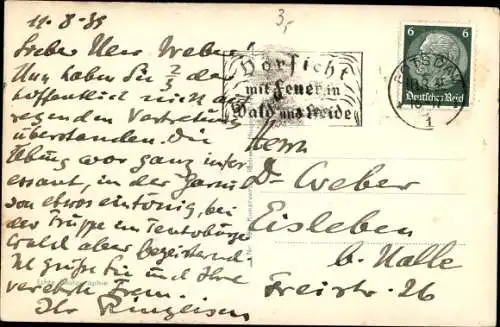 11-8-35
3,-
Lieber Herr Weber!
Nun haben Sie 2/3 der
hoffentlich nicht auf
regenden Vertretung
überstanden. Die
Übung war ganz inter
essant, in der Garni
son etwas eintönig, bei
der Truppe im Teutoburger
Wald aber begeisternd
Ich grüße Sie und Ihre
verehrte Frau.
Ihr
Vorsicht
mit Feuer in
Wald und Heide
6 6
Deutsches Reich
1
Herrn
Dr Weber
Eisleben
b. Halle
Freistr. 26